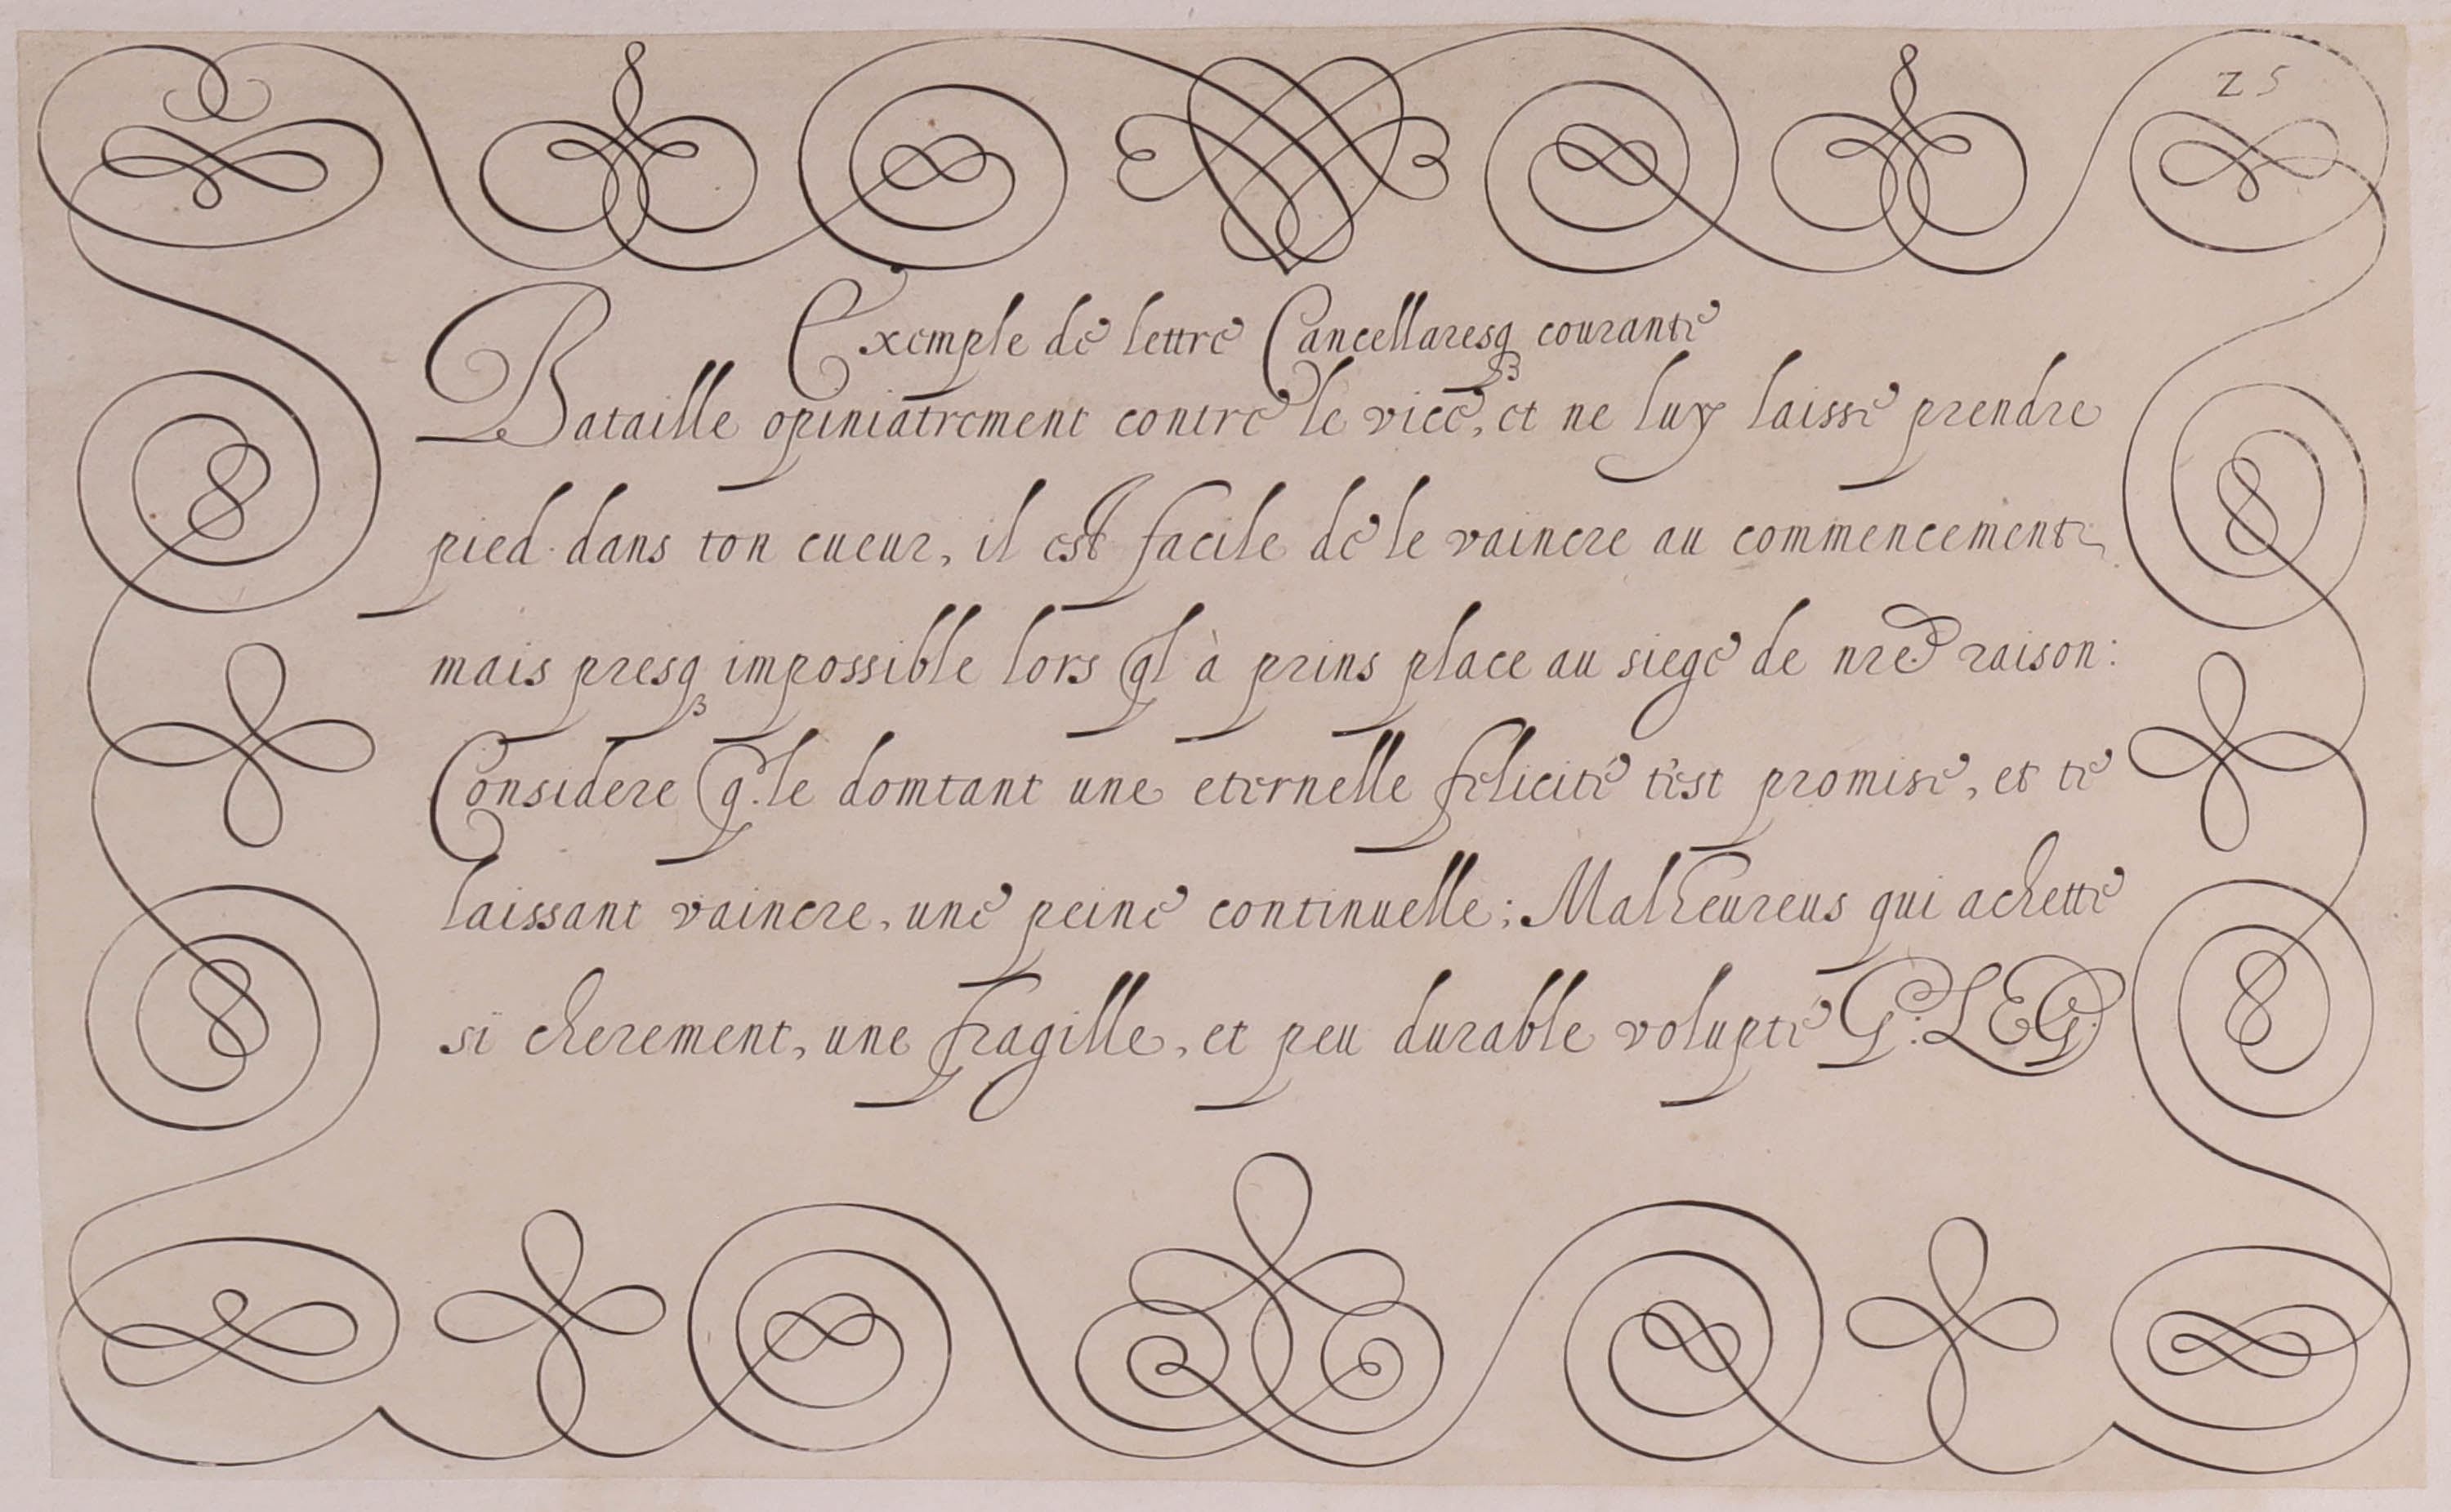 25
Exemple de lettre Cancellaresq courante
Bataille opiniatrement contre le vice, et ne luy laisse prendre
pied dans ton cueur, il est facile de le vaincre au commencement
mais presq impossible lors ql à prins place au siege de nre raison:
Considere q. le domtant une eternelle felicité t'est promise, et te
laissant vaincre, une peine continuelle; Malheureus qui achette
si cherement, une fragille, et peu durable volupté G: LEG: